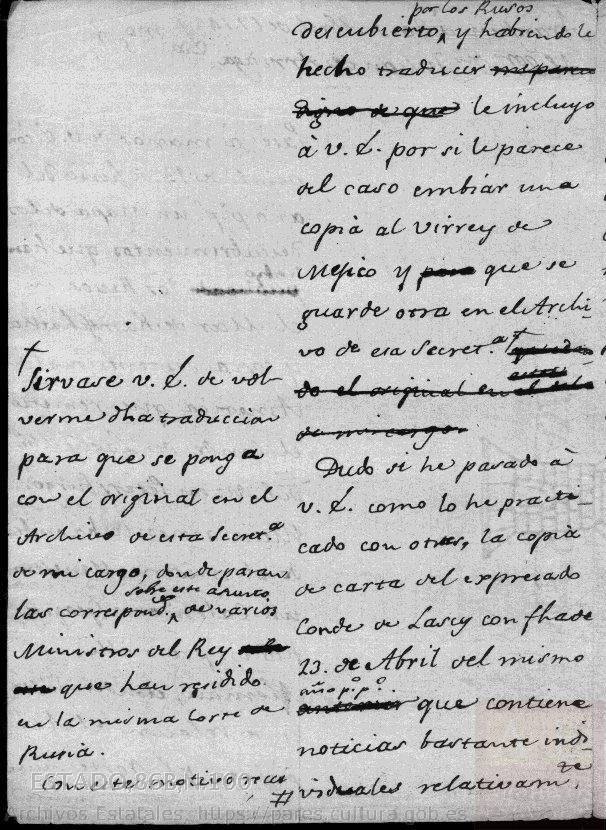 por los Rusos
descubierto, y habiendole
hecho traducir
digno de que le incluyo
à V.E. por si le parece
del caso embiar una
copia al Virrey de
Mejico y para que se
guarde otra en el Archi-
vo de esa Secret.ª †
do el original en el
de mi cargo.
Dudo si he pasado à
V.E. como lo he practi
cado con otras, la copia
de carta del expresado
Conde de Lascy con fha de
23. de Abril del mismo
año p.º p.º
anterior que contiene
noticias bastante indi-
viduales relativam.te
†
Sirvase V.E. de vol-
verme dha traduccion
para que se ponga
con el original en el
Archivo de esta Secret.ª
de mi cargo, donde paran
sobre este asunto
las correspond.s de varios
Ministros del Rey
que han residido
en la misma Corte de
Rusia.
Con este motivo
#
ESTADO,86B,N.100
Archivos Estatales, https://pares.cultura.gob.es